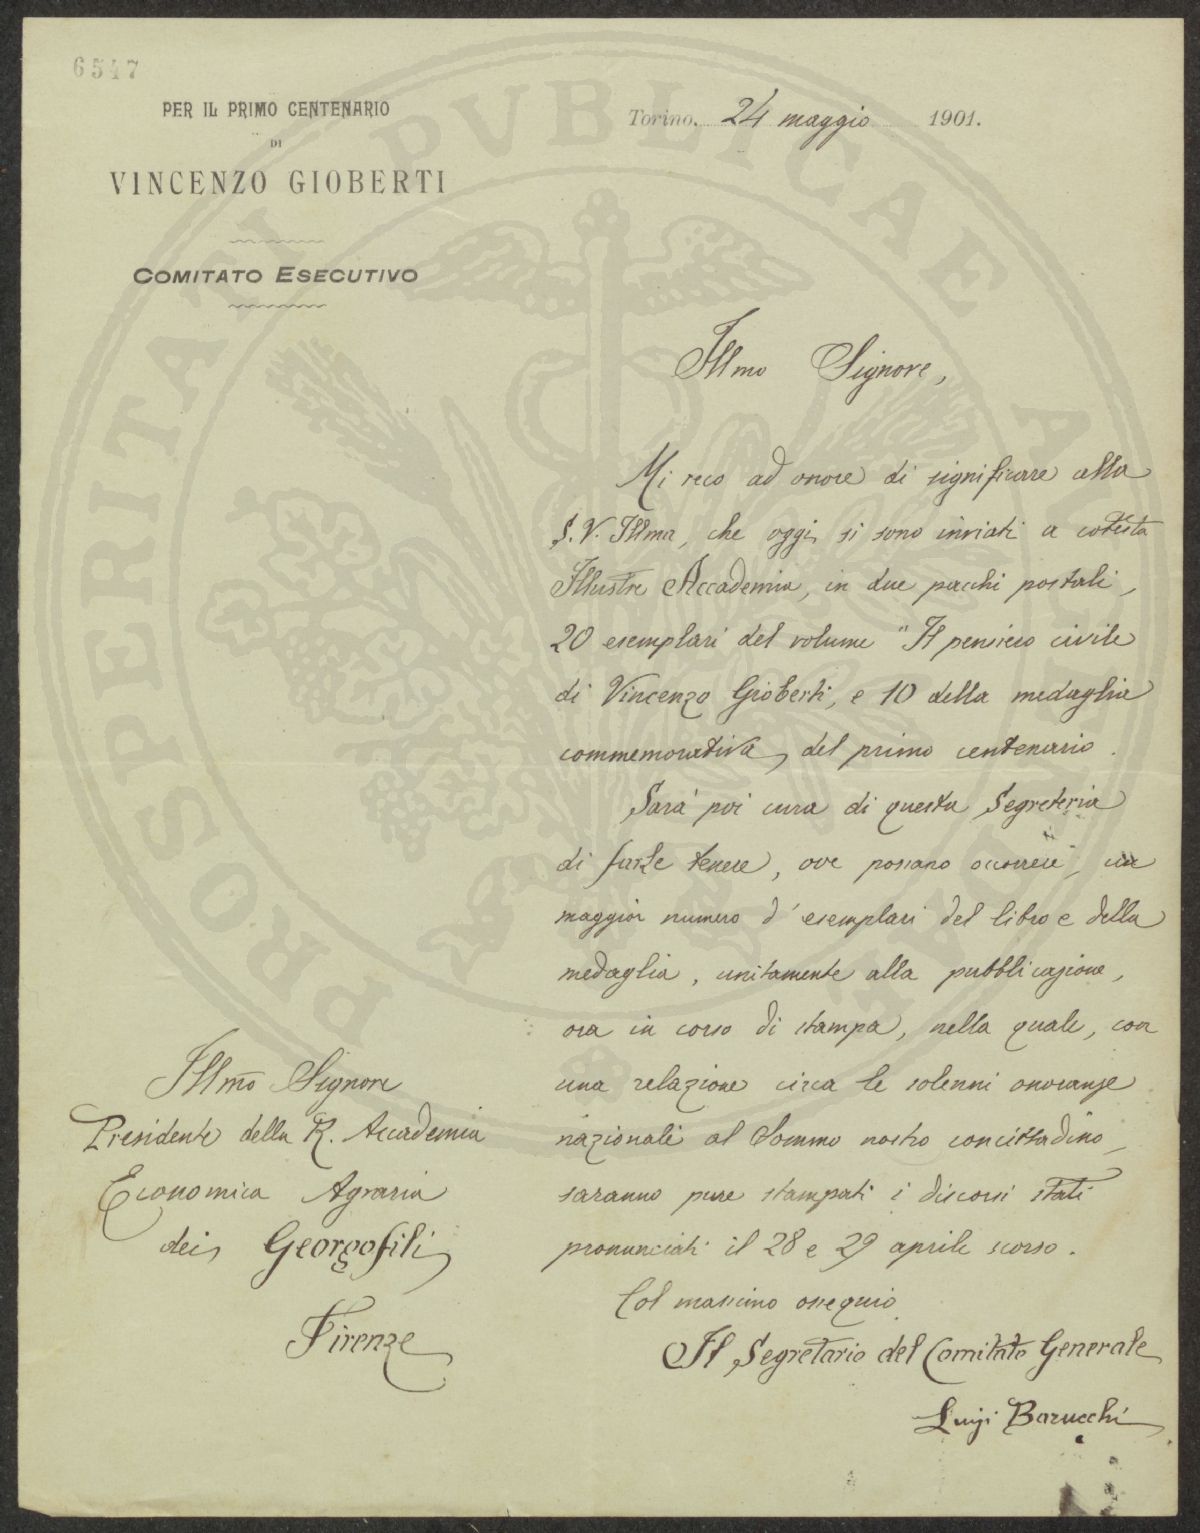 6547
PER IL PRIMO CENTENARIO
DI
VINCENZO GIOBERTI
COMITATO ESECUTIVO
Torino, 24 maggio 1901.
Illmo Signore,
Mi reco ad onore di significare alla
S. V. Illma, che oggi si sono inviati a cotesta
Illustre Accademia, in due pacchi postali,
20 esemplari del volume "Il pensiero civile
di Vincenzo Gioberti, e 10 della medaglia
commemorativa del primo centenario.
Sarà poi cura di questa Segreteria
di farle tenere, ove possano occorrere, un
maggior numero d'esemplari del libro e della
medaglia, unitamente alla pubblicazione,
ora in corso di stampa, nella quale, con
una relazione circa le solenni onoranze
nazionali al Sommo nostro concittadino,
saranno pure stampati i discorsi stati
pronunciati il 28 e 29 aprile scorso.
Col massimo ossequio
Il Segretario del Comitato Generale
Luigi Barucchi
Illmo Signore
Presidente della R. Accademia
Economica Agraria
dei Georgofili
Firenze
PROSPERITATI PUBLICAE AUGENDAE